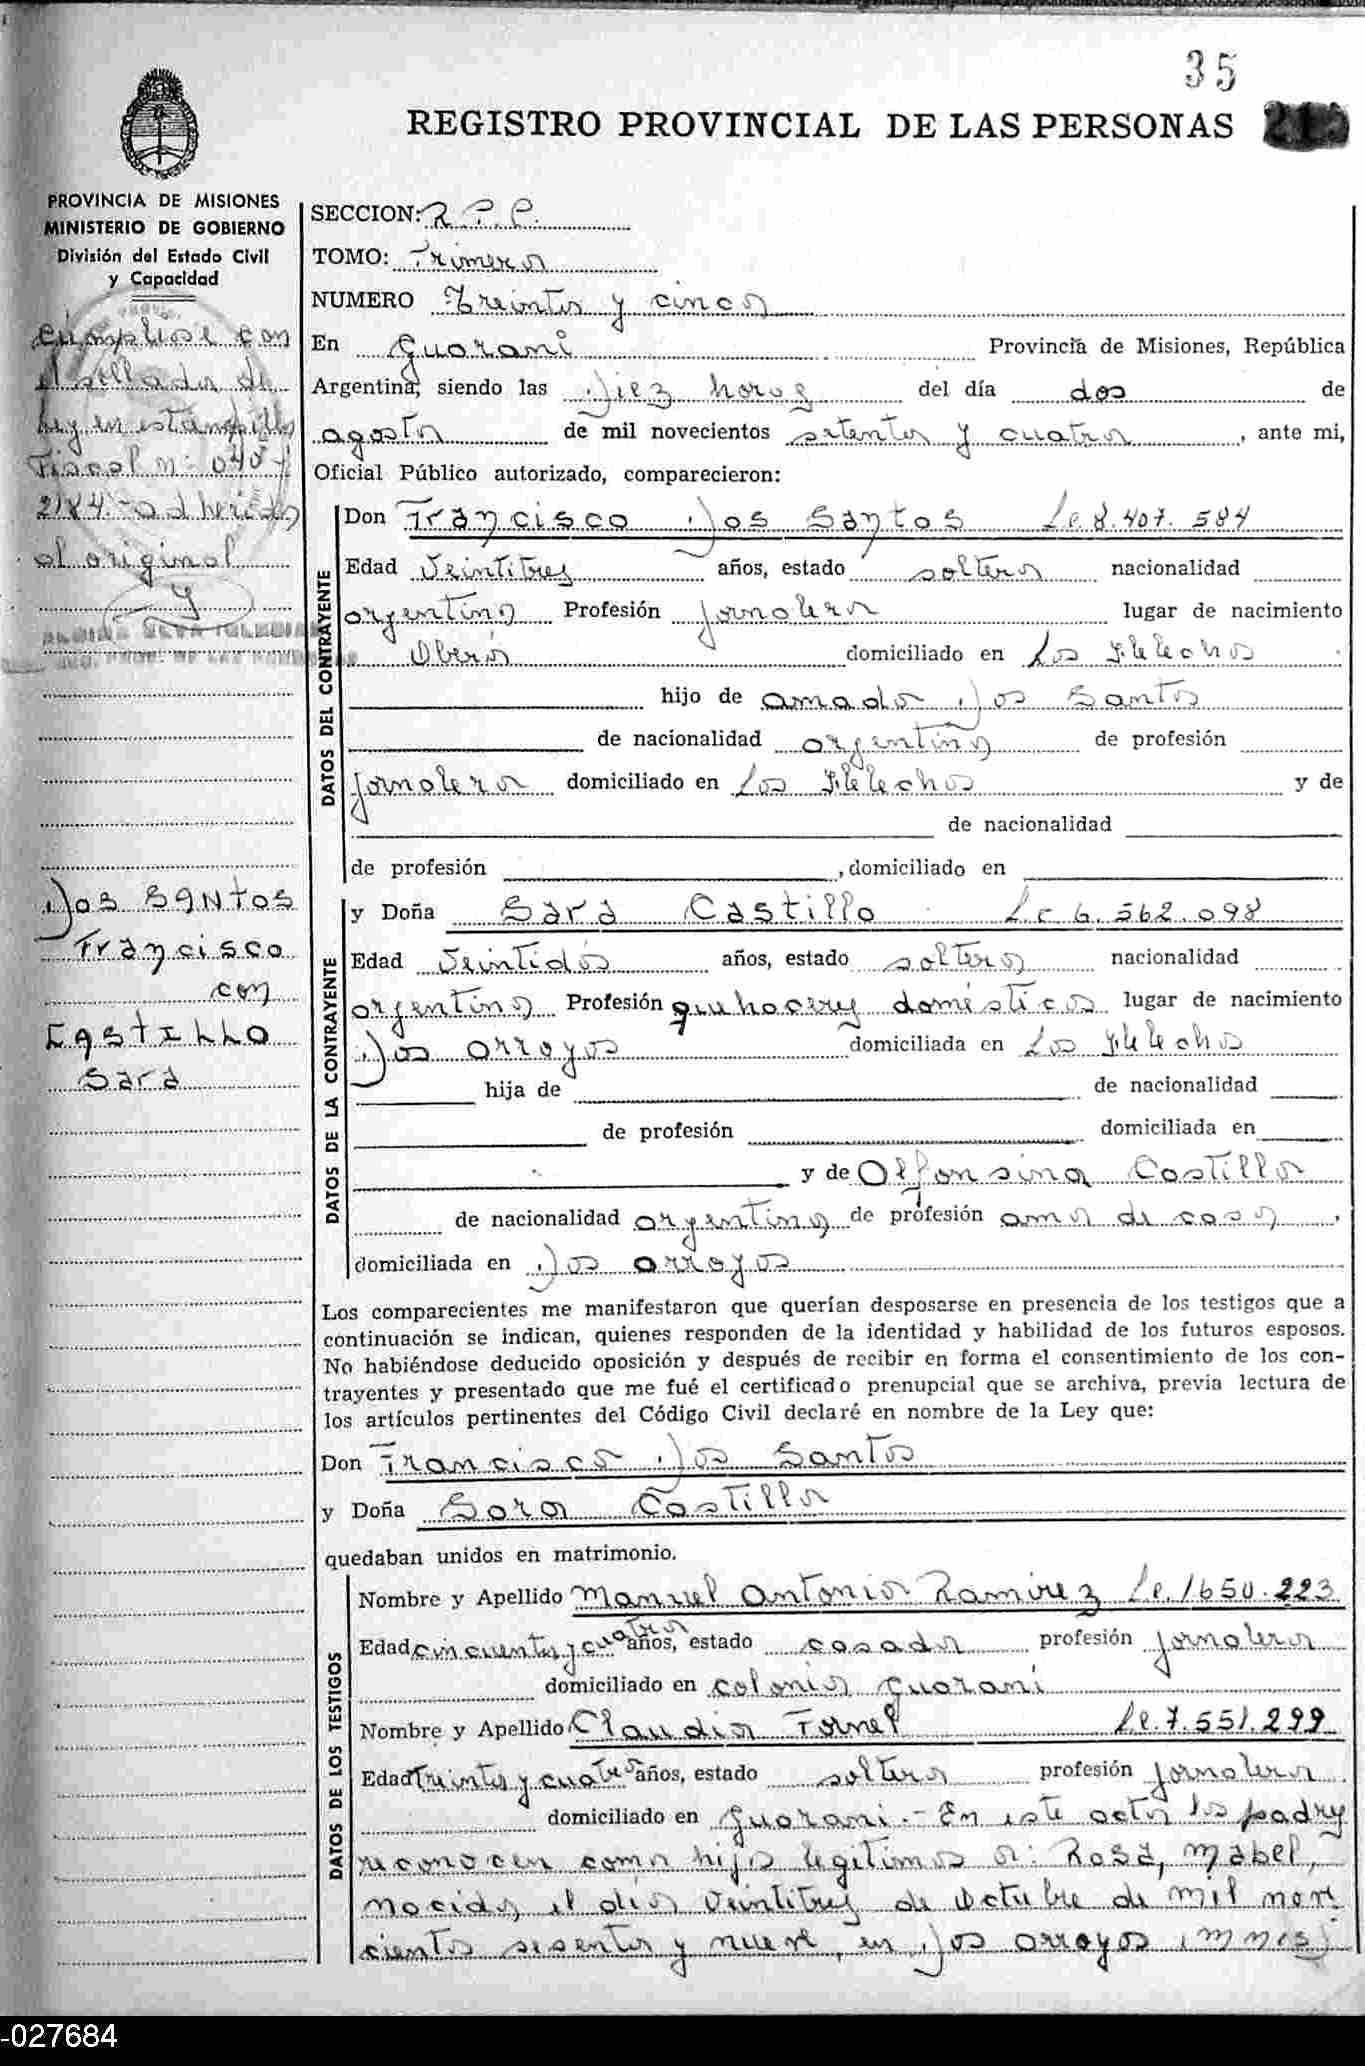 35
REGISTRO PROVINCIAL DE LAS PERSONAS
PROVINCIA DE MISIONES
MINISTERIO DE GOBIERNO
División del Estado Civil
y Capacidad
cúmplase con
el sellado de
Ley en estampilla
Fiscal nº 040
2184 - adherido
al original
Dos SANTOS
Francisco
con
CASTILLO
Sara
SECCION: R.P.P.
TOMO: Primero
NUMERO Treinta y cinco
En Guaraní Provincia de Misiones, República
Argentina, siendo las Diez horas del día dos de
agosto de mil novecientos setenta y cuatro, ante mi,
Oficial Público autorizado, comparecieron:
DATOS DEL CONTRAYENTE
Don Francisco Dos Santos L.e 8.407.584
Edad Veintitres años, estado soltero nacionalidad
argentino Profesión Jornalero lugar de nacimiento
Oberá domiciliado en Los Helechos
hijo de amado Dos Santos
de nacionalidad argentino de profesión
Jornalero domiciliado en Los Helechos y de
de nacionalidad
de profesión , domiciliado en
DATOS DE LA CONTRAYENTE
y Doña Sara Castillo L.c 6.562.098
Edad Veintidós años, estado soltera nacionalidad
argentina Profesión quehaceres domésticos lugar de nacimiento
Dos arroyos domiciliada en Los Helechos
hija de de nacionalidad
de profesión domiciliada en
y de Olfonsina Castillo
de nacionalidad argentina de profesión ama de casa,
domiciliada en Dos arroyos
Los comparecientes me manifestaron que querían desposarse en presencia de los testigos que a
continuación se indican, quienes responden de la identidad y habilidad de los futuros esposos.
No habiéndose deducido oposición y después de recibir en forma el consentimiento de los con-
trayentes y presentado que me fué el certificado prenupcial que se archiva, previa lectura de
los artículos pertinentes del Código Civil declaré en nombre de la Ley que:
Don Francisco Dos Santos
y Doña Sara Castillo
quedaban unidos en matrimonio.
DATOS DE LOS TESTIGOS
Nombre y Apellido Manuel Antonio Ramirez L.e. 1650.223
Edad cincuenta y cuatro años, estado casado profesión Jornalero
domiciliado en colonia Guaraní
Nombre y Apellido Claudio Fornel L.e. 7.551.299
Edad treinta y cuatro años, estado soltero profesión Jornalero
domiciliado en Guaraní.- En este acto los padres
reconocen como hija legitimos a: Rosa, Mabel,
nacida el día Veintitres de Octubre de mil nove
cientos sesenta y nueve, en Dos arroyos, mnes;
-027684